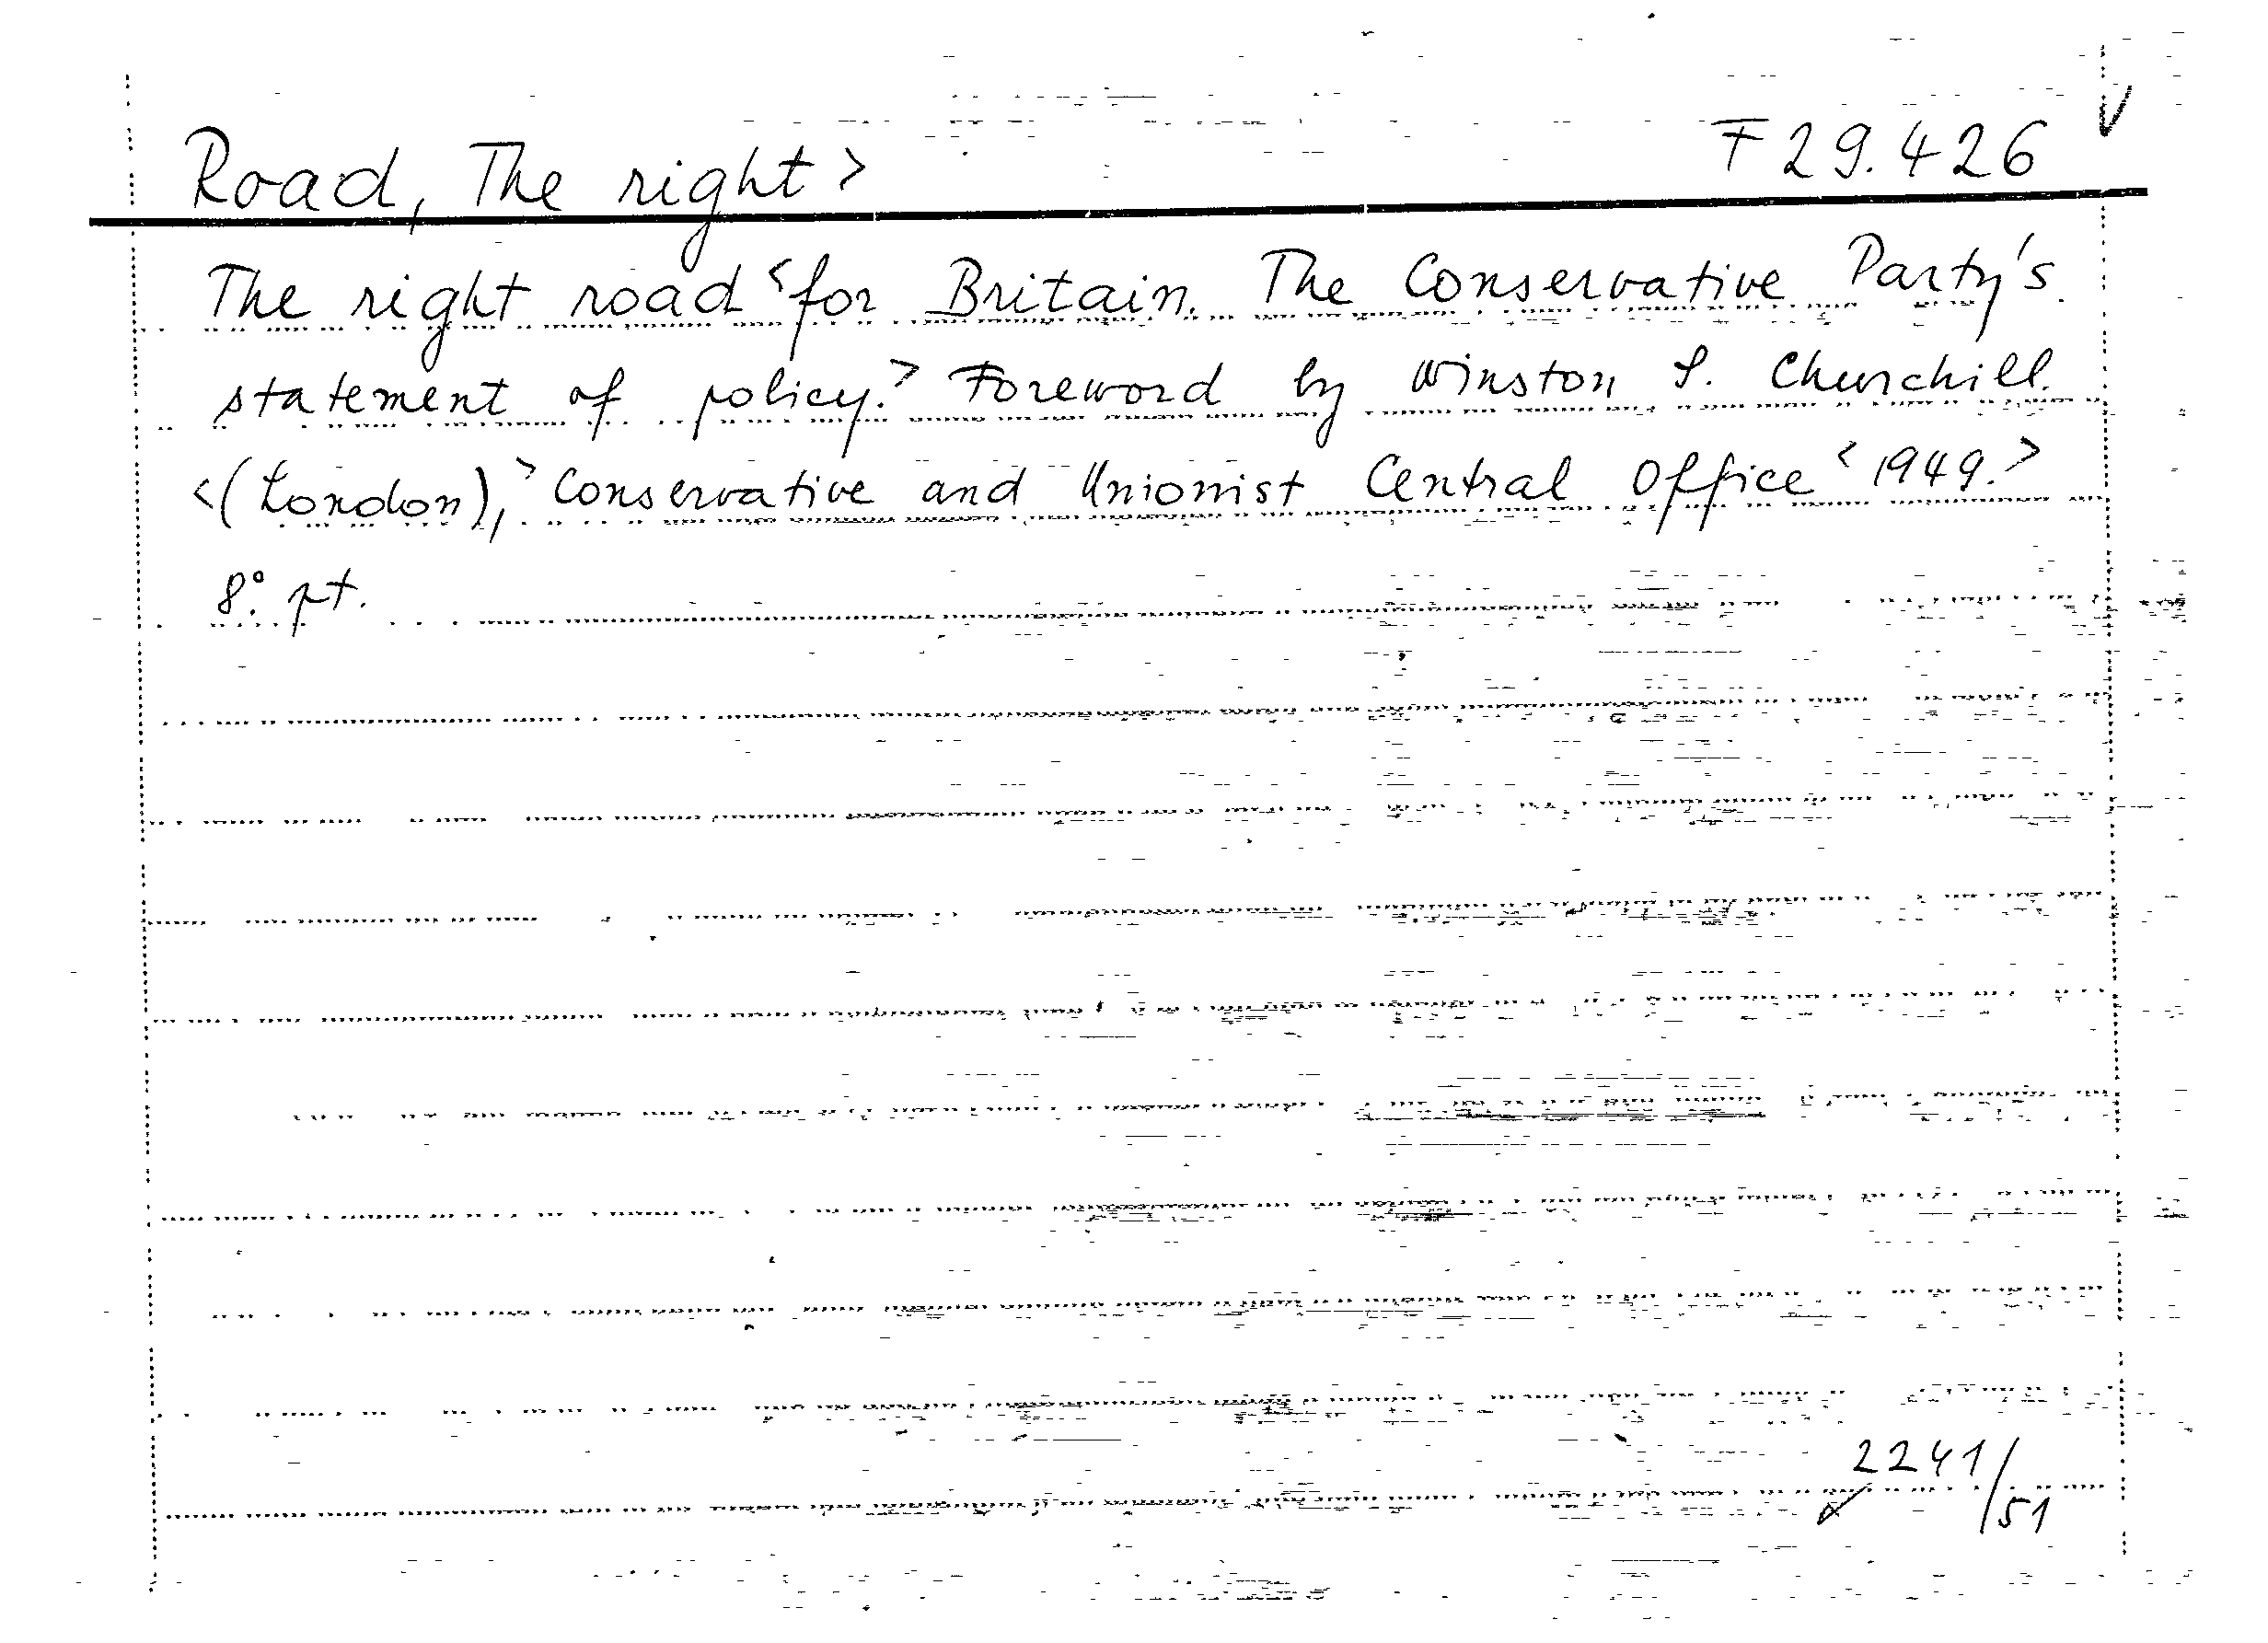 Road, The right> F 29.426
The right road <for Britain. The Conservative Party's
statement of policy.> Foreword by Winston S. Churchill.
<(London),> Conservative and Unionist Central Office <1949.>
8° pt.
2241/51